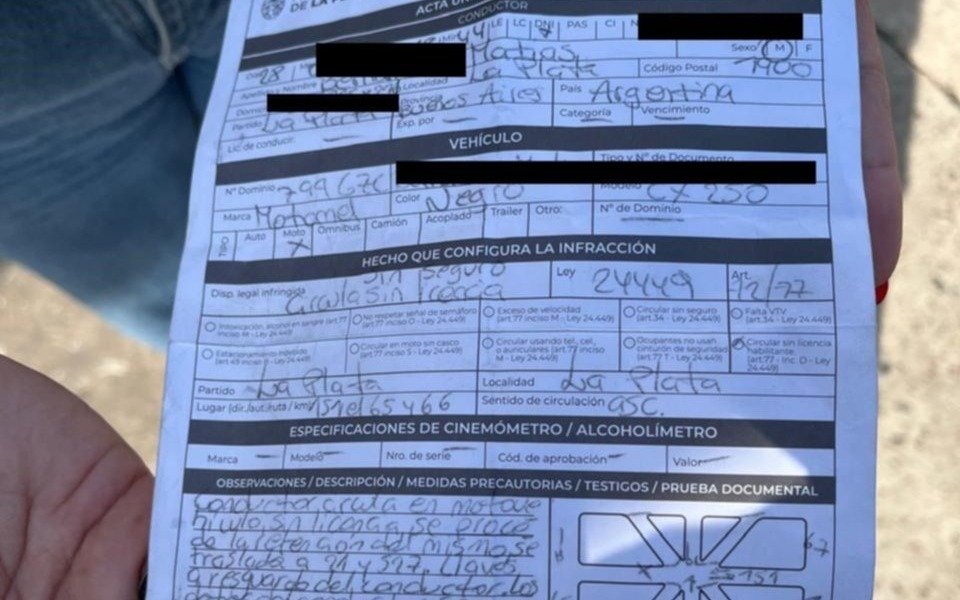 ACTA
CONDUCTOR
LE LC DNI PAS CI
Sexo M F
28
Matías
Código Postal 1900
Apellido Nombre Localidad La Plata
Provincia Buenos Aires País Argentina
Partido La Plata Exp. por — Categoría — Vencimiento —
Lic. de conducir: —
VEHÍCULO
Tipo y Nº de Documento
Nº Dominio 799 Color Negro Modelo CX 250
Marca Motomel Nº de Dominio —
TIPO Auto Moto X Omnibus Camión Acoplado Trailer Otro:
HECHO QUE CONFIGURA LA INFRACCIÓN
Sin seguro
Disp. legal infringida Circula sin licencia Ley 24449 Art. 72/77
Intoxicación, alcohol en sangre (art. 77 inciso M - Ley 24.449)
No respetar señal de semáforo (art. 77 inciso O - Ley 24.449)
Exceso de velocidad (art. 77 inciso M - Ley 24.449)
Circular sin seguro (art. 34 - Ley 24.449)
Falta VTV (art. 34 - Ley 24.449)
Estacionamiento indebido (art. 49 inciso B - Ley 24.449)
Circular en moto sin casco (art. 77 inciso S - Ley 24.449)
Circular usando tel, cel, o auriculares (art. 77 inciso M - Ley 24.449)
Ocupantes no usan cinturón de seguridad (art. 77 T - Ley 24.449)
Circular sin licencia habilitante (art. 77 - Inc. D - Ley 24.449)
Partido La Plata Localidad La Plata
Lugar (dir./aut./ruta / km) 151 e/ 65 y 66 Sentido de circulación asc.
ESPECIFICACIONES DE CINEMÓMETRO / ALCOHOLÍMETRO
Marca — Modelo — Nro. de serie — Cód. de aprobación — Valor —
OBSERVACIONES / DESCRIPCIÓN / MEDIDAS PRECAUTORIAS / TESTIGOS / PRUEBA DOCUMENTAL
Conductor circula en motove
hiculo sin licencia se proce
de la retencion del mismo, se
traslada a 21 y 517. Llaves
a resguardo del conductor. Los
67
151